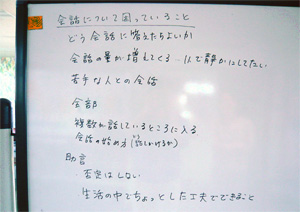 会話について困っていること
どう会話に答えたらよいか
会話の量が増えてくる…1人で静かにしてたい
苦手な人との会話
全部
複数が話しているところに入る
会話の始め方(話しかけるか)
助言
・否定はしない
生活の中でちょっとした工夫でできること